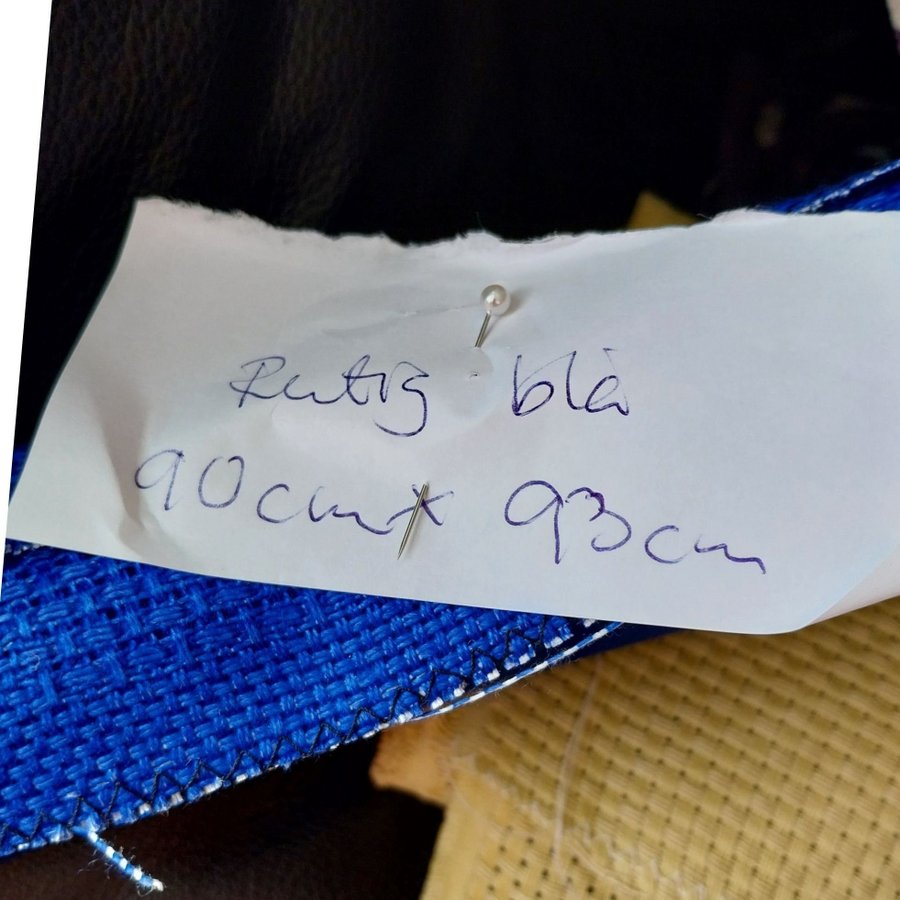 Rutig blå
90cm x 93cm